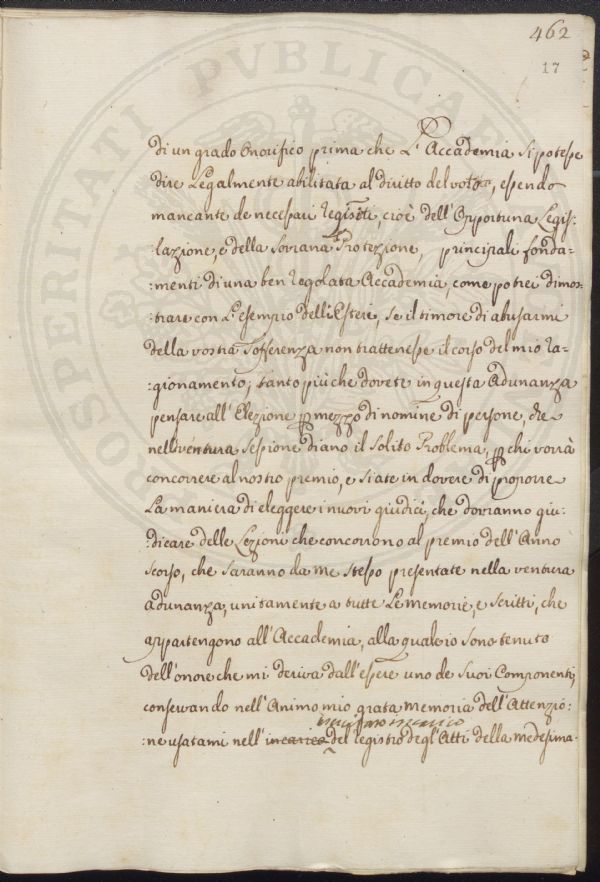 462
17
PROSPERITATI PVBLICAE
di un grado Onorifico prima che L'Accademia si potesse
dire Legalmente abilitata al diritto del voto, essendo
mancante de necessari regisiti, cioè dell'Opportuna Legis:
:lazione, e della Sovrana Protezione, principali fonda:
:menti di una ben regolata Accademia, come potrei dimos:
trare con L'esempio delli Esteri, se il timore di abusarmi
della vostra Sofferenza non trattenesse il corso del mio ra:
:gionamento; tanto più che dovete in questa Adunanza
pensare all'Elezione p mezzo di nomine di persone, che
nell'ventura Sessione diano il Solito Problema, p chi vorrà
concorrere al nostro premio, e siate in dovere di proporre
La maniera di eleggere i nuovi giudici, che dovranno giu:
:dicare delle Lezioni che concorrono al premio dell'Anno
scorso, che saranno da me stesso presentate nella ventura
adunanza, unitamente a tutte Le memorie, e Scritti, che
appartengono all'Accademia, alla quale io sono tenuto
dell'onore che mi deriva dall'essere uno de Suoi Componenti,
conservando nell'Animo mio grata memoria dell'Attenzio:
:ne usatami nell'incarico del registro degl'Atti della medesima.